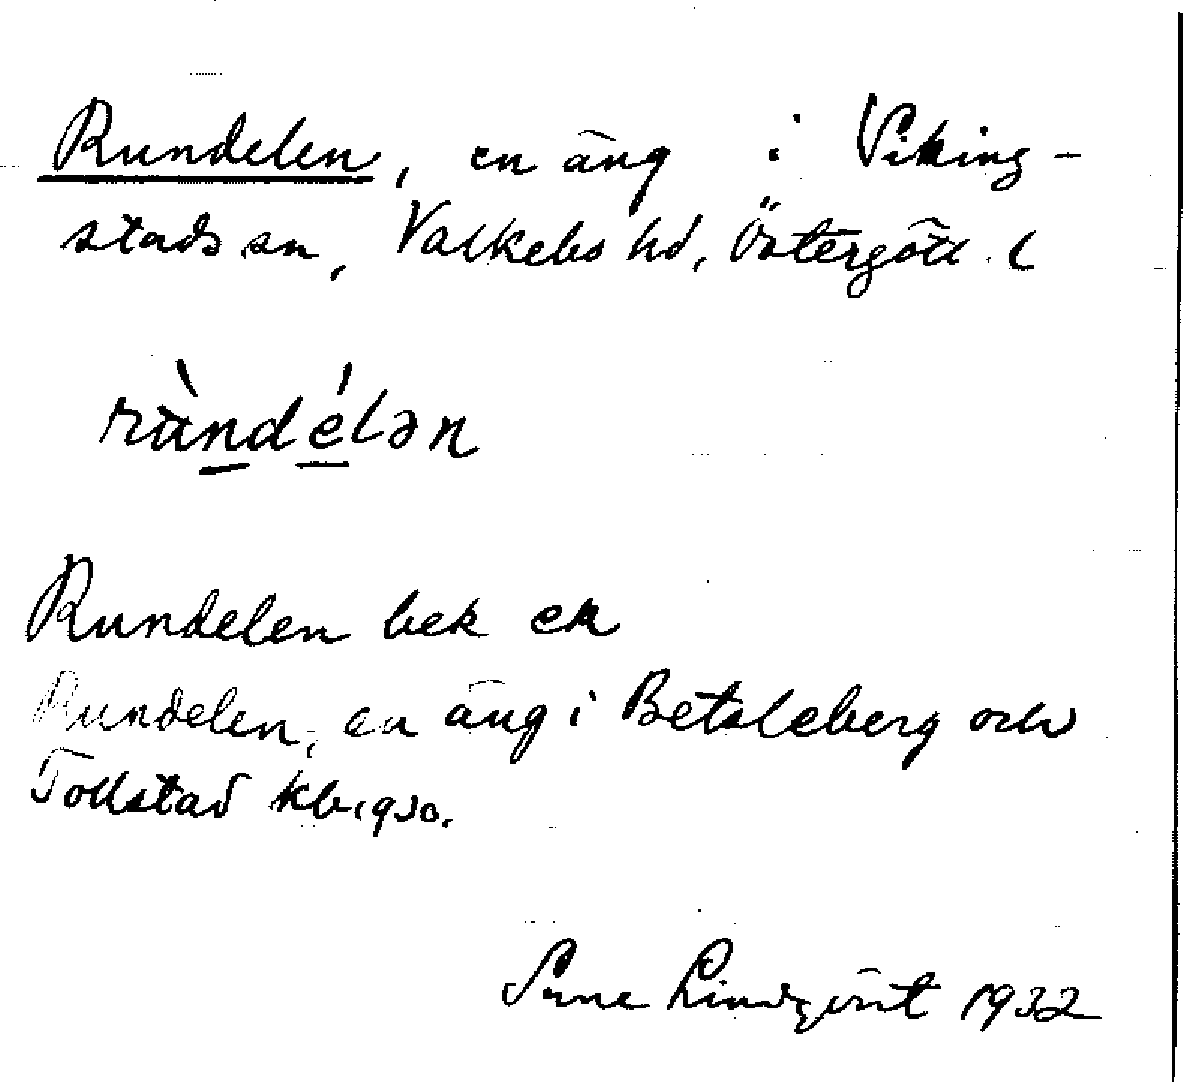 Rundelen, en äng i Viking-
stads sn, Valkebo hd, Östergötl. l
rùndélən
Rundelen bek ek
Rundelen, en äng i Betsleberg och
Tollstad Kb 1930.
Sune Lindqvist 1932